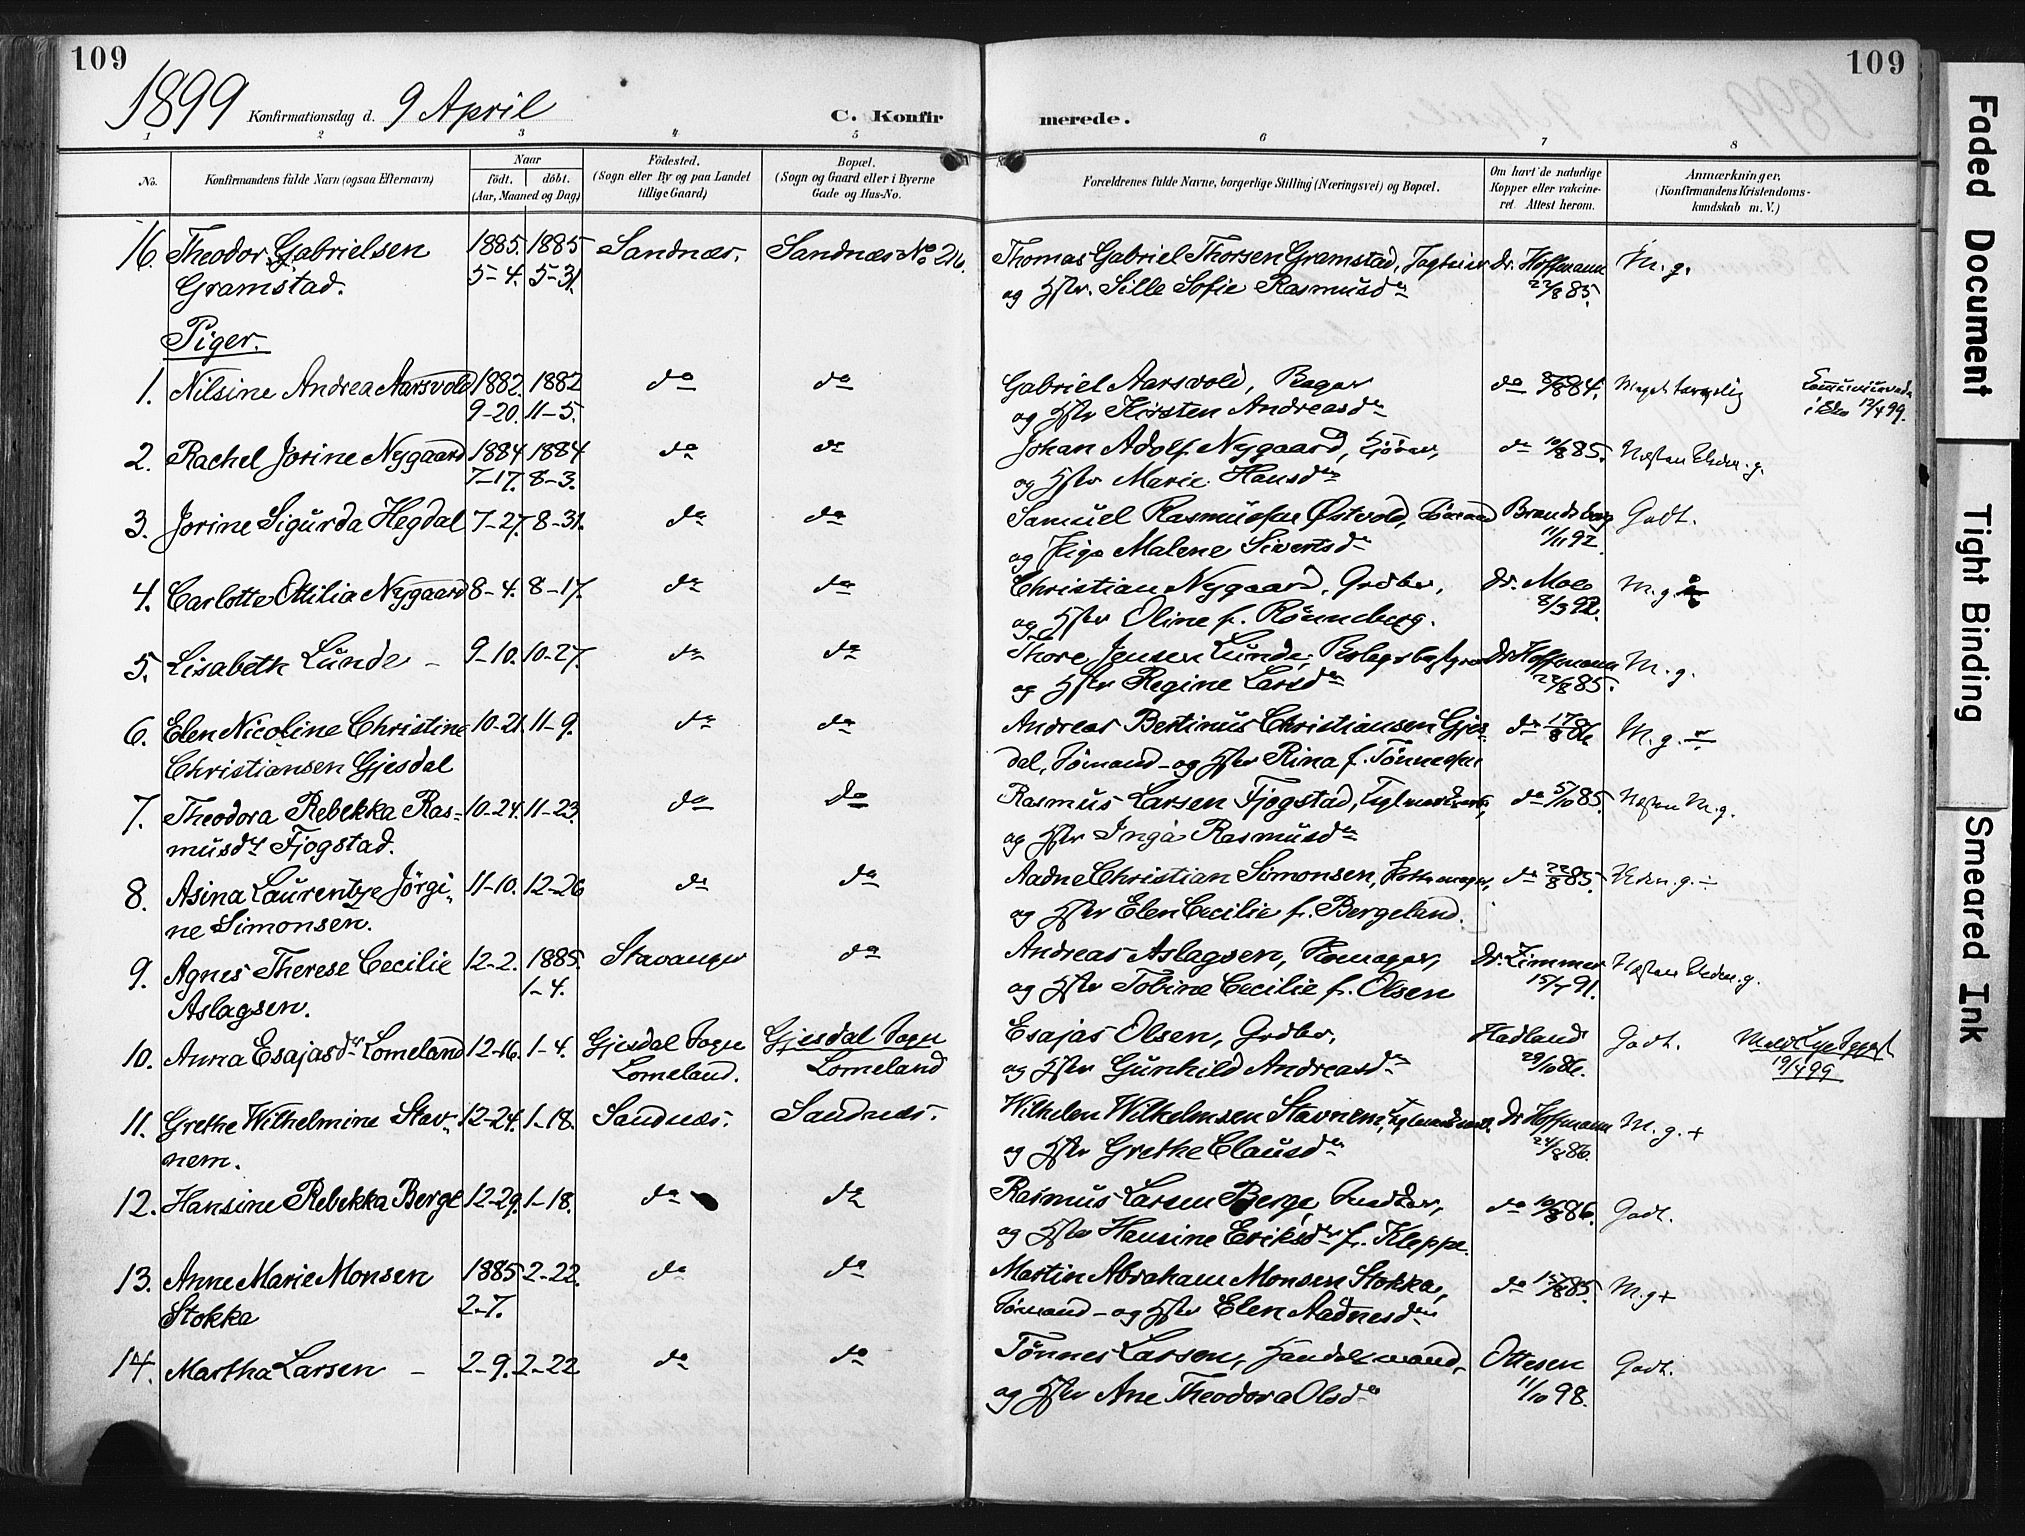 109
109
1899 Konfirmationsdag d. 9 April C. Konfirmerede.
1 2 3 4 5 6 7 8
No. Konfirmandens fulde Navn (ogsaa Efternavn) Naar født. døbt. (Aar, Maaned og Dag) Fødested. (Sogn eller By og paa Landet tillige Gaard) Bopæl. (Sogn og Gaard eller i Byerne Gade og Hus-No. Forældrenes fulde Navne, borgerlige Stilling (Næringsvei) og Bopæl. Om havt de naturlige Kopper eller vakcineret. Attest herom. Anmærkninger, (Konfirmandens Kristendomskundskab m. V.)
16. Theodor Gabrielsen 1885. 1885 Sandnæs. Sandnæs No 216. Thomas Gabriel Thorsen Gramstad, Dr. Hoffmann M. g.
Gramstad. 5-4. 5-31. og Hstr. Sille Sofie Rasmusdr 22/8 85.
Piger.
1. Nilsine Andrea Aarsvold 1882. 1882 do do Gabriel Aarsvold, Bager do 8/8 84. Meget
9-20. 11-5. og Hstr Kirsten Andreasdr 12/4 99.
2. Rachel Jorine Nygaard 1884 1884 do do Johan Adolf Nygaard, do 10/8 85. Næsten
7-17. 8-3. og Hstr Marie Hansdr
3. Jorine Sigurda Hegdal 7-27. 8-31. do do Samuel Rasmussen Østvold, Sømand Brandsberg Godt.
og Pige Malene Sivertsdr 11/11 92.
4. Carlotte Otilia Nygaard 8-4. 8-17. do do Christian Nygaard, Grdbr, Dr. Moe M. g.
og Hstr Oline f. Rønneberg. 8/3 92.
5. Lisabeth Lunde - 9-10. 10-27. do do Thore Jensen Lunde, Dr. Hoffmann M. g.
og Hstr Regine Larsdr 22/8 85.
6. Elen Nicoline Christine 10-21. 11-9. do do Andreas Bertinus Christiansen Gjes- do 17/8 86. M. g.
Christiansen Gjesdal dal, Sømand - og Hstr Rina f. Tønnessen
7. Theodora Rebekka Ras- 10-24. 11-23. do do Rasmus Larsen Fjogstad, do 5/10 85. Næsten M. g.
musdr Fjogstad. og Hstr Inga Rasmusdr
8. Asina Laurentze Jörgi- 11-10. 12-26 do do Aadne Christian Simonsen, Pottemager, do 22/8 85.
ne Simonsen. og Hstr Elen Cecilie f. Bergeland.
9. Agnes Therese Cecilie 12-2. 1885. Stavanger do Andreas Aslagsen, Dr. Zimmer Næsten
Aslagsen. 1-4. og Hstr Tobine Cecilie f. Olsen 91.
10. Anna Esajasdr Lomeland 12-16. 1-4. Gjesdal Sogn Gjesdal Sogn Esajas Olsen, Grdbr, Hadland Godt.
Lomeland. Lomeland og Hstr Gunhild Andreasdr 29/10 86. 19/4 99
11. Grethe Wilhelmine Stav- 12-24. 1-18. Sandnæs. Sandnæs. Wilhelm Wilhelmsen Stavnem, Dr Hoffmann M. g. +
nem. og Hstr Grethe Clausdr 24/8 86.
12. Hansine Rebekka Berge 12-29. 1-18. do do Rasmus Larsen Berge, do 10/8 86. Godt.
og Hstr Hansine Eriksdr f. Kleppe.
13. Anne Marie Monsen 1885 2-22. do do Martin Abraham Monsen Stokka, do 15/8 85. M. g +
Stokka 2-7. Sømand - og Hstr Elen Aadnesdr
14. Martha Larsen - 2-9. 2-22 do do Tönnes Larsen, Handelsmand, Ottesen Godt.
og Hstr Ane Theodora Olsdr 11/10 98.
Faded Document
Tight Binding
Smeared Ink